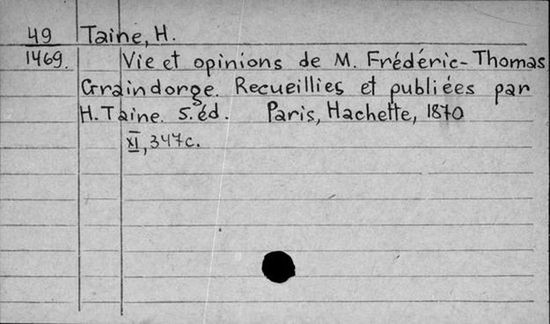 49 Taine, H.
1469. Vie et opinions de M. Frédéric-Thomas
Graindorge. Recueillies et publiées par
H. Taine. 5. éd. Paris, Hachette, 1870
XI, 347 c.